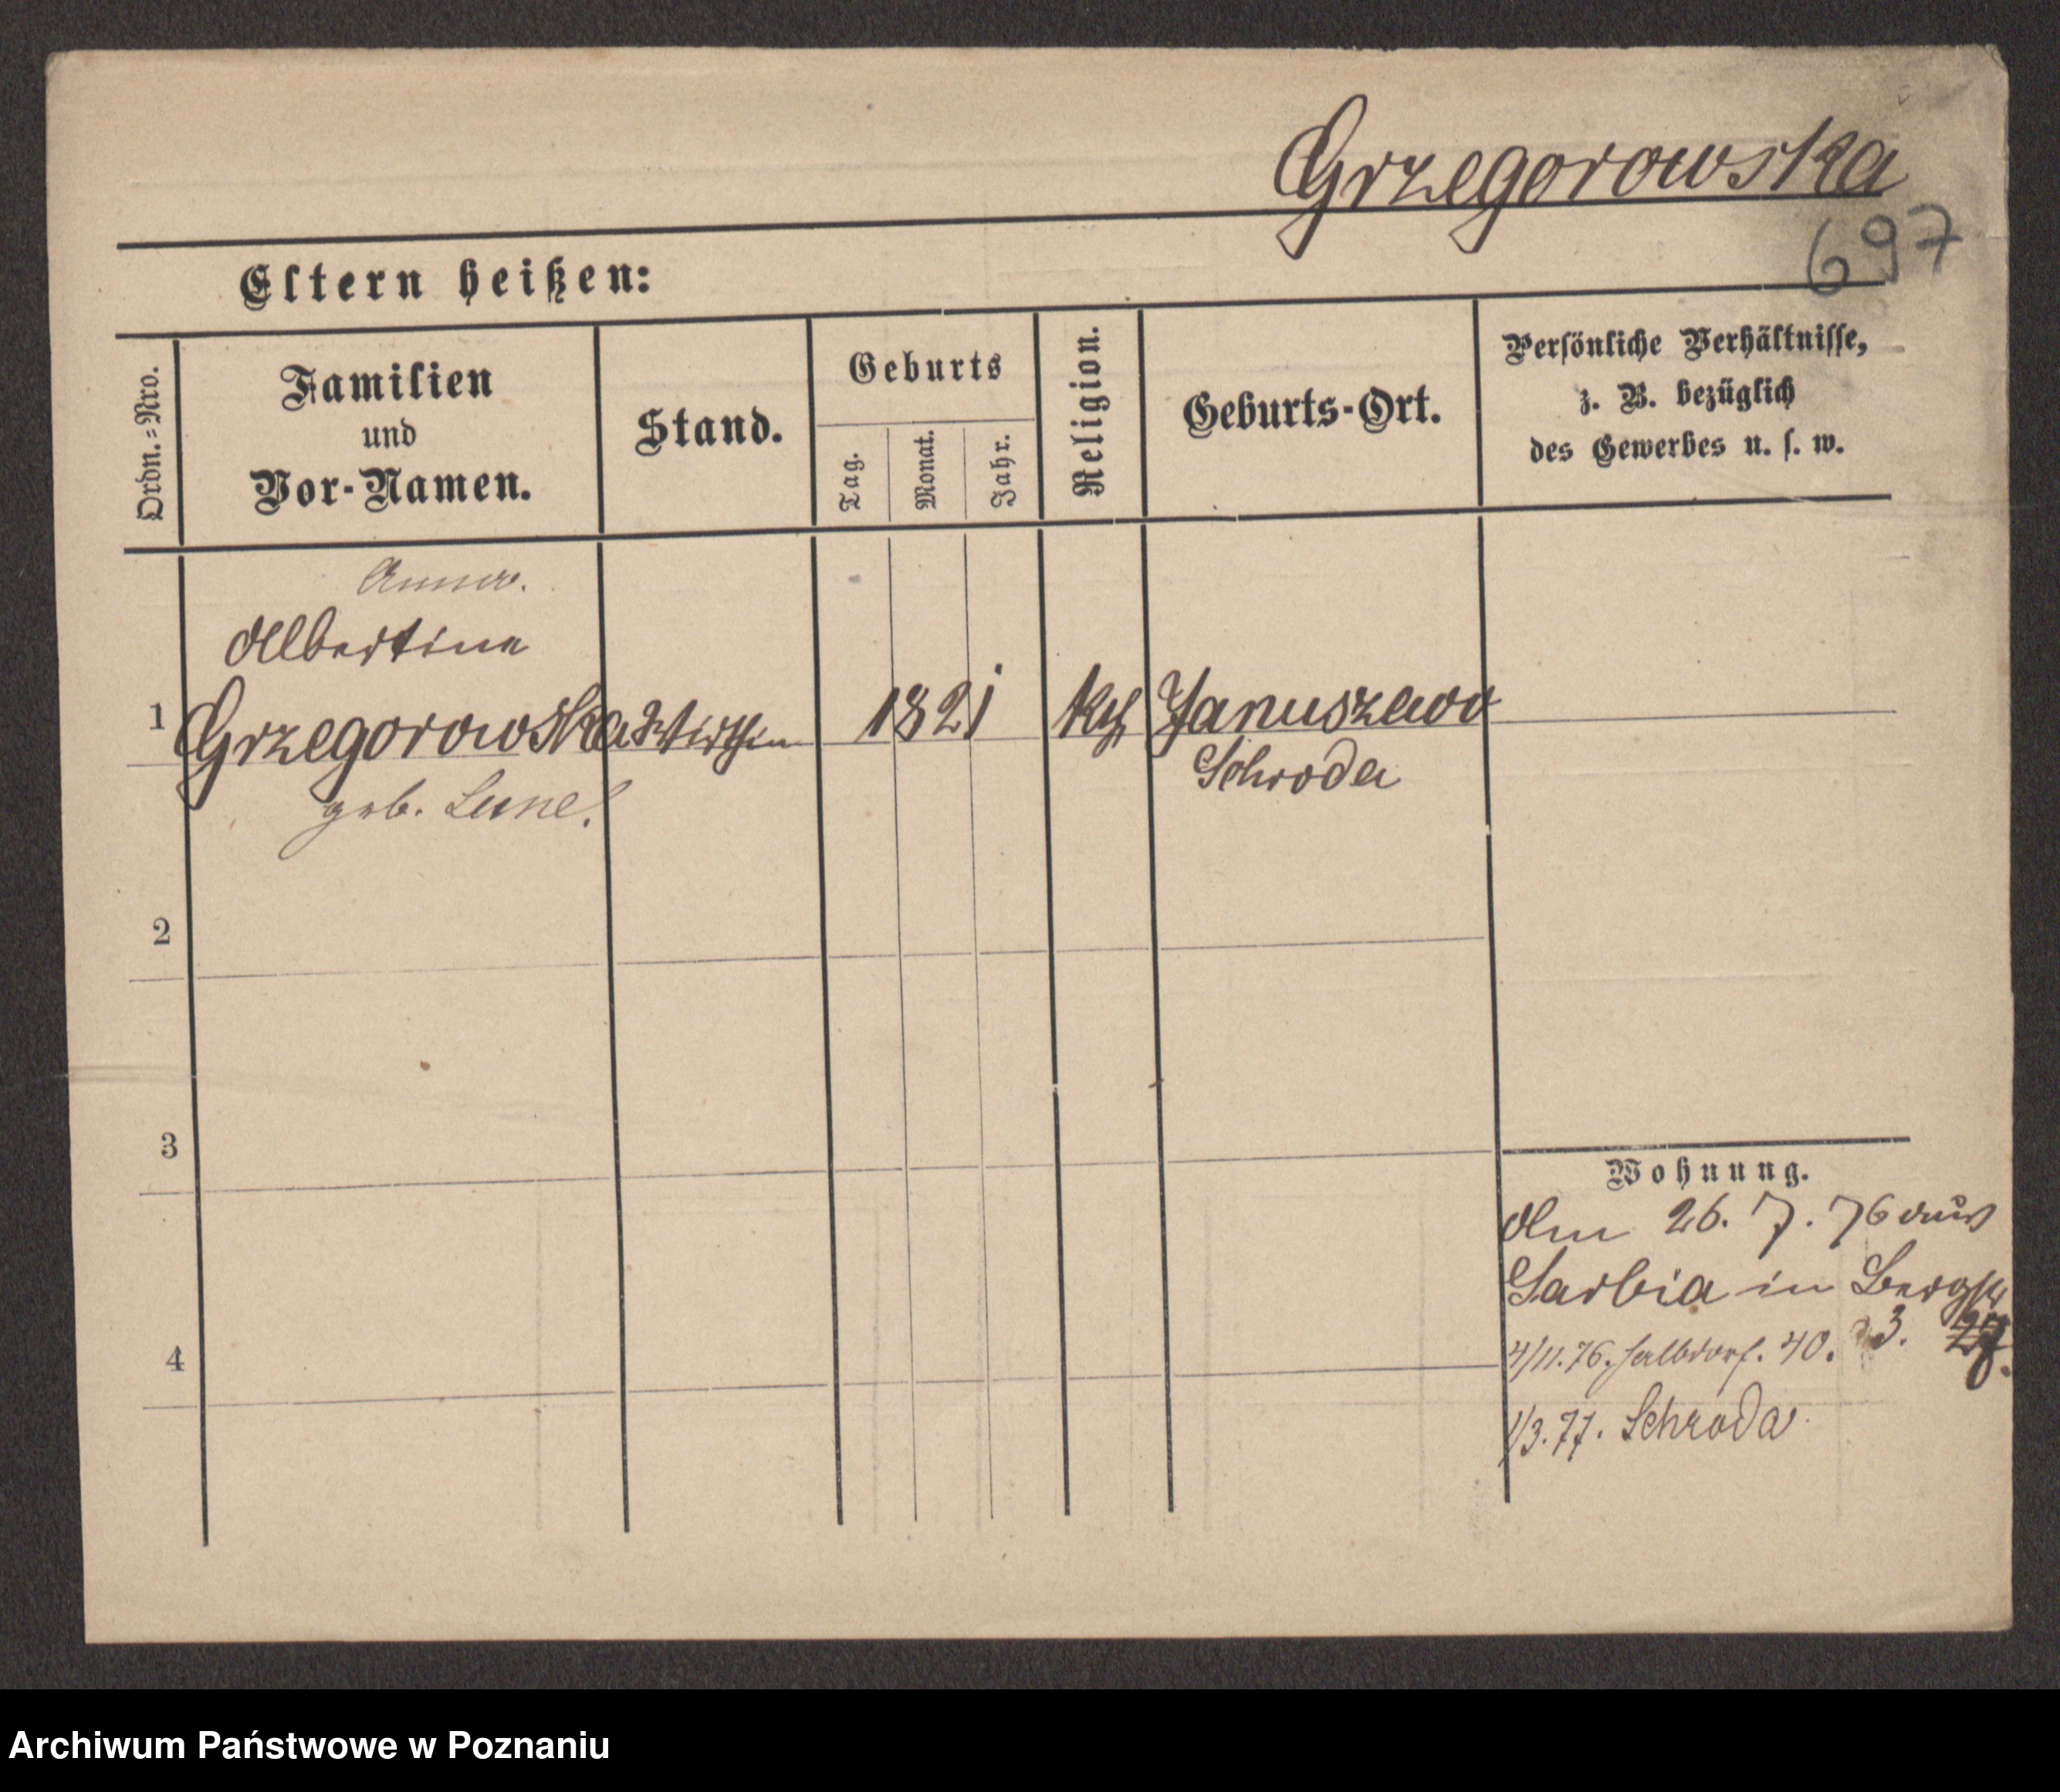 Grzegorowska
697
Eltern heißen:
Ordn.-Nro.
Familien
und
Vor-Namen.
Stand.
Geburts
Tag.
Monat.
Jahr.
Religion.
Geburts-Ort.
Persönliche Verhältnisse,
z. B. bezüglich
des Gewerbes u. s. w.
Anna.
Albertine
1 Grzegorowska Wirthin 1821 kth Januszewo
Schroda
geb.
2
3
4
Wohnung.
Am 26. 7. 76 aus
Sarbia in Bergstr
4/11.76. Halbdorf. 40. 3.
1/3.77. Schroda
Archiwum Państwowe w Poznaniu